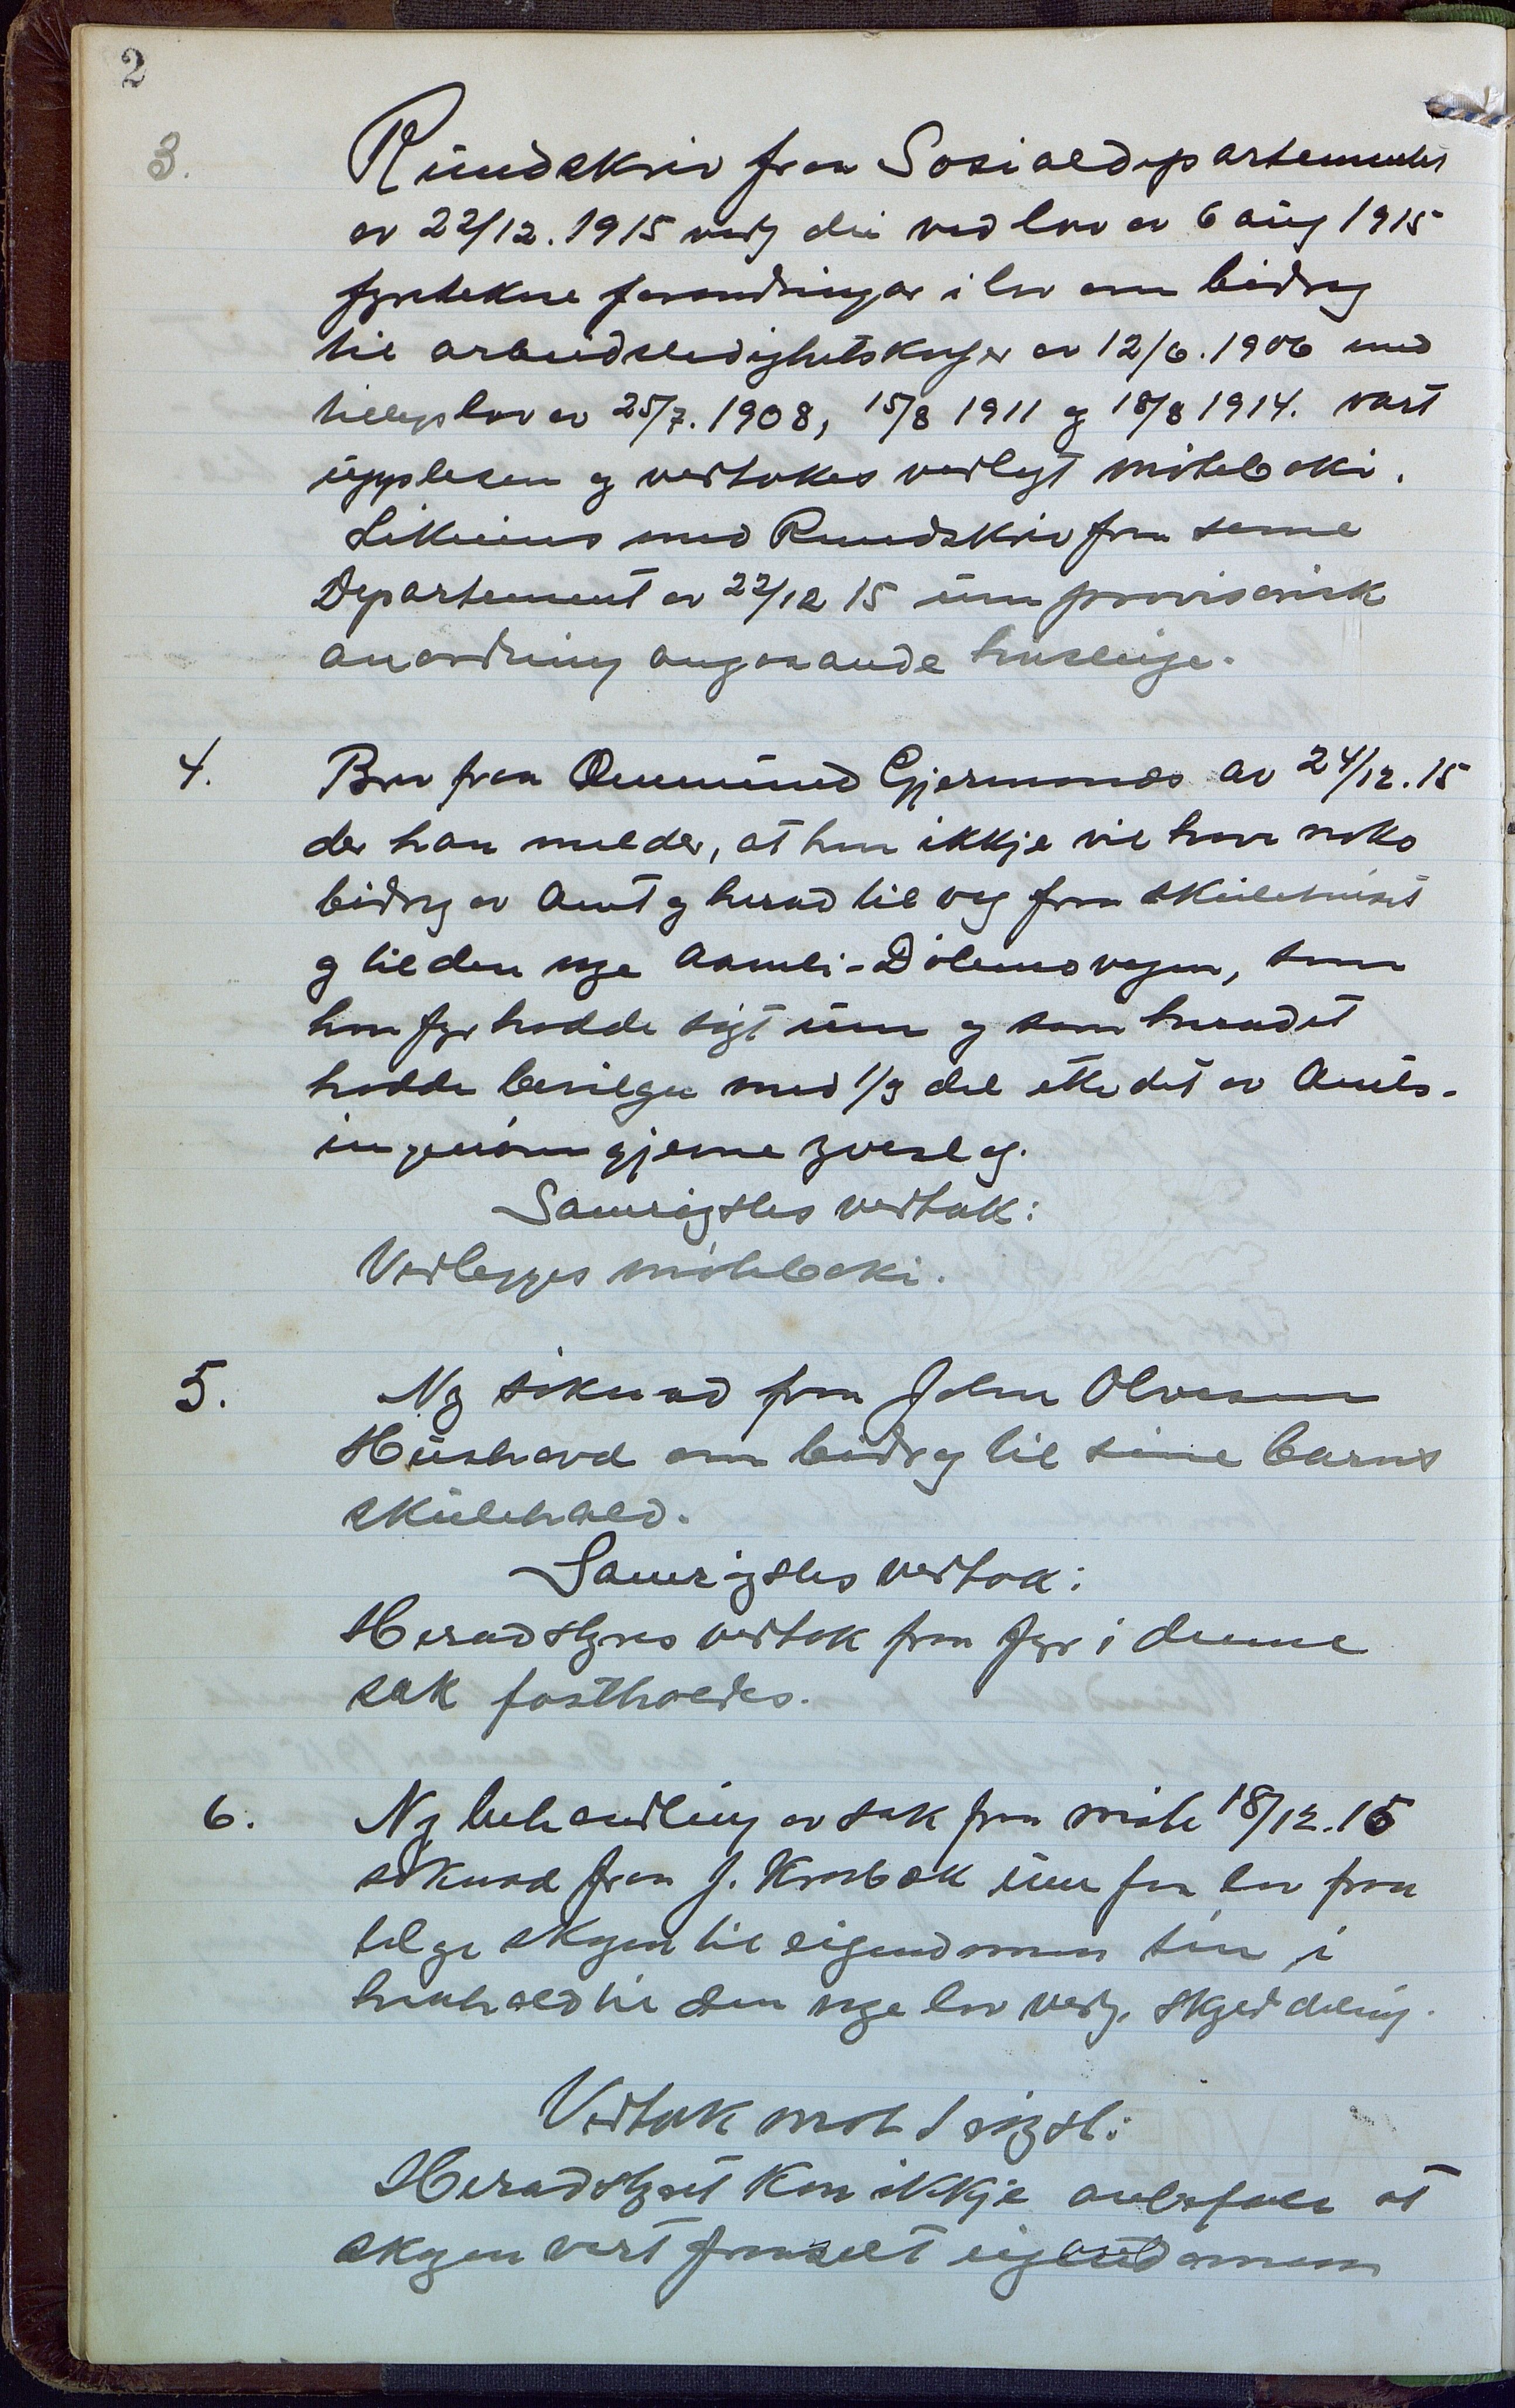 2
3. Rundskriv fraa Sosialdepartementet
av 22/12. 1915 vedg dei ved lov av 6 aug 1915
fyretekne forandringar i lov om bidrag
til arbeidsledighetskasser av 12/6. 1906 med
tilleggslov av 25/7. 1908, 15/8 1911 og 18/8 1914. vart
upplesen og vertokes vedlagt møteboki.
Likeeins med Rundskriv fraa same
Departement av 22/12 15 um provisorisk
anordning angaaande husleige.
4. Brev fraa Ommund Gjermonæs av 24/12. 15
der han melder, at han ikkje vil hava noko
bidrag av Amt og herad til veg fraa skulehuset
og til den nye Aamli-Dølemovegen, som
han fyr hadde søgt um og som heradet
hadde bevilga med 1/3 del etter det av Amts-
ingeniøren gjevne yverslag.
Samrøystes vertak:
Vedlegges møteboki.
5. Ny søknad fraa John Olvesen
Hushovd om bidrag til sine barns
skulehald.
Samrøystes vertak:
Heradstyres vertak fraa fyr i denne
sak fastholdes.
6. Ny behandling av sak fraa møte 18/12. 15
søknad fraa J. Krosbæk um faa lov fraa
selge skogen til eigendomen sin i
henhald til den nye lov vedg. skyld deling.
Vertak mot 1 røyst:
Heradstyret kan ikkje anbefale at
skogen vert fraaselt eigendomen